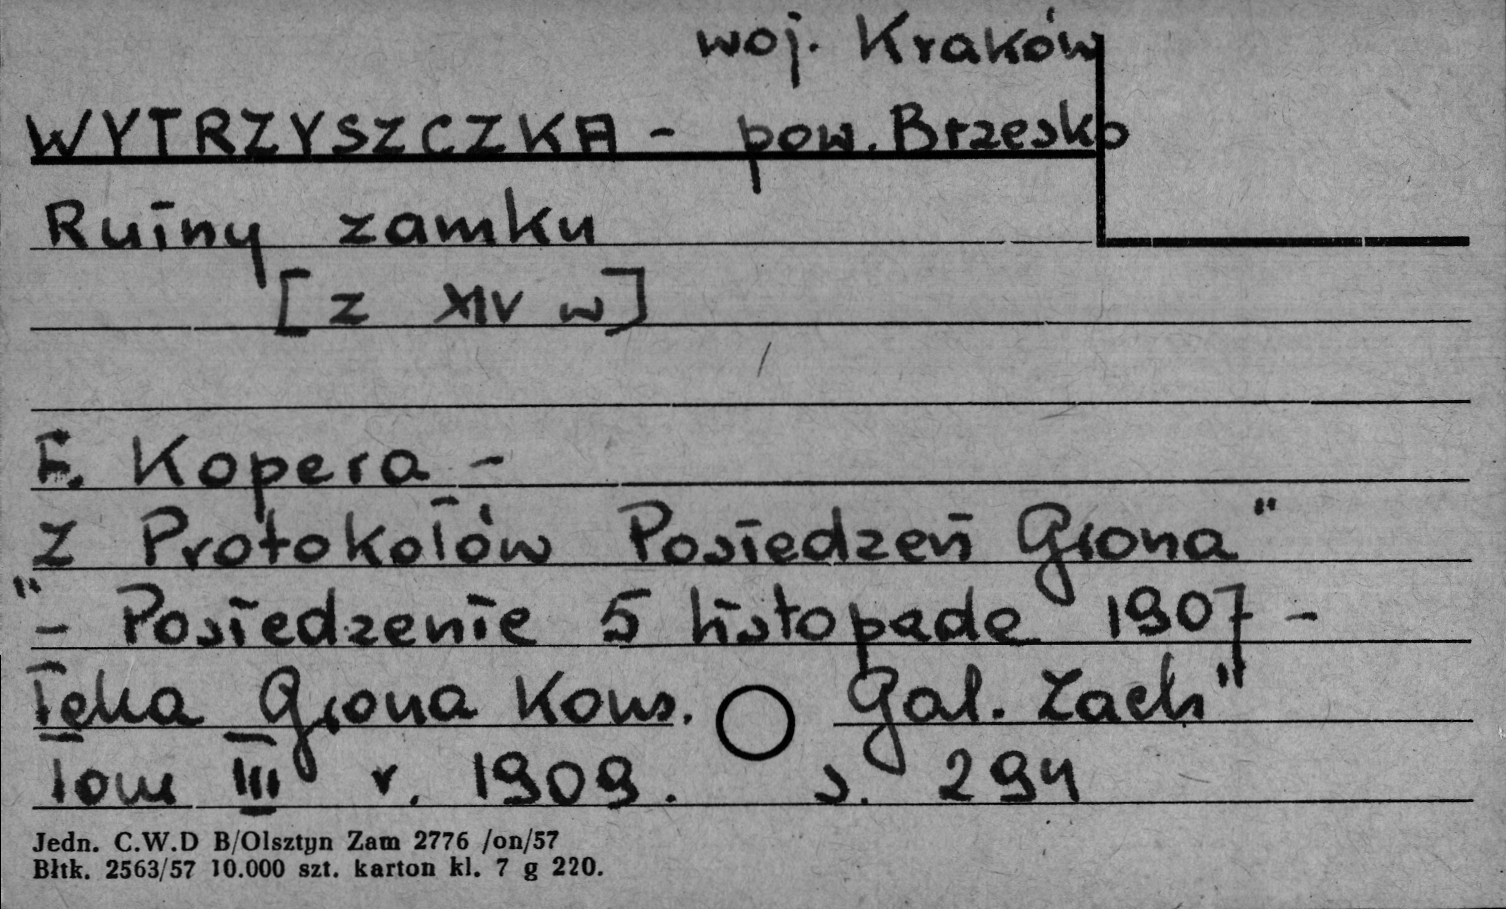 woj. Kraków
WYTRZYSZCZKA - pow. Brzesko
Ruiny zamku
[z XIV w]
F. Kopera -
Z Protokołów Posiedzeń Grona"
"- Posiedzenie 5 listopada 1907 -
Teka Grona Kons. Gal. Zach"
Tom III r. 1909. s. 294
Jedn. C.W.D B/Olsztyn Zam 2776 /on/57
Błtk. 2563/57 10.000 szt. karton kl. 7 g 220.